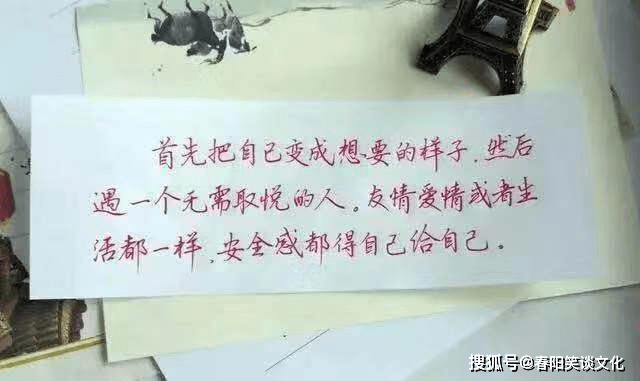 首先把自己变成想要的样子,然后
遇一个无需取悦的人。友情爱情或者生
活都一样,安全感都得自己给自己。
搜狐号@春阳笑谈文化